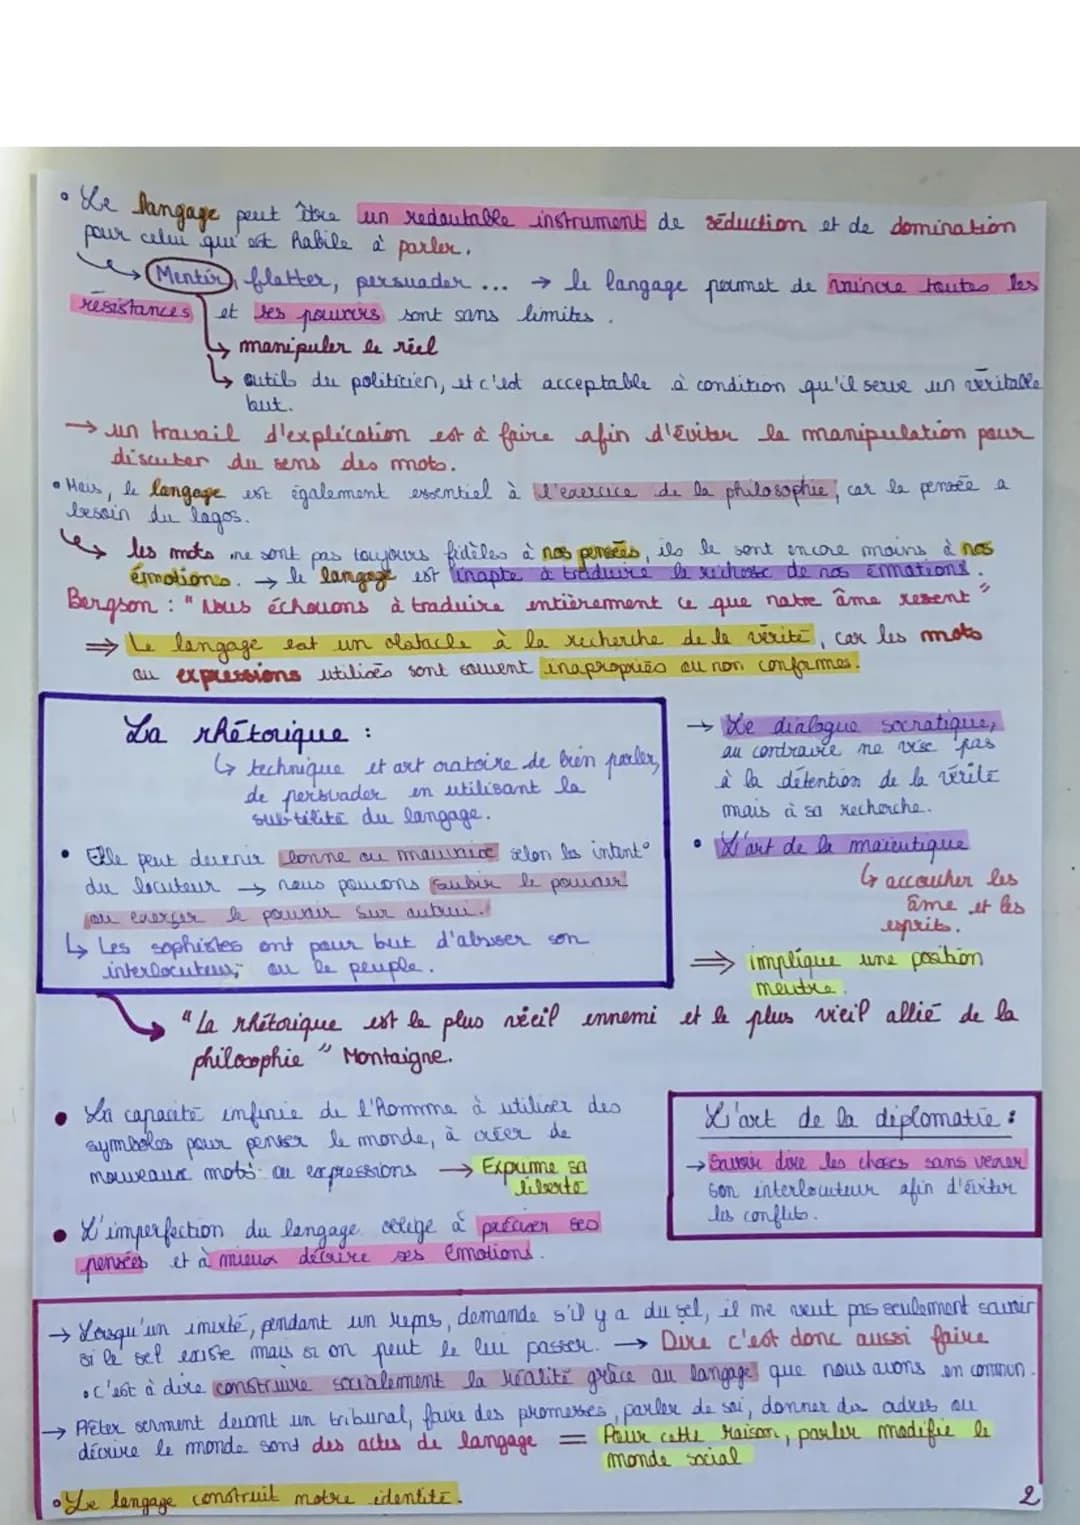 • Le langage peut être un redoutable instrument de séduction et de domination
pour celui qui est habile à parler.
→ Mentir, flatter, persuader ... → le langage permet de vaincre toutes les
résistances et ses pouvoirs sont sans limites.
↳ manipuler le réel
↳ outils du politicien, et c'est acceptable à condition qu'il serve un véritable
but.
→ un travail d'explication est à faire afin d'éviter la manipulation pour
discuter du sens des mots.
• Mais, le langage est également essentiel à l'exercice de la philosophie, car la pensée a
besoin du logos.
↳ les mots ne sont pas toujours fidèles à nos pensées, ils le sont encore moins à nos
émotions. → le langage est inapte à traduire la richesse de nos émmations.
Bergson : "Nous échouons à traduire entièrement ce que notre âme resent"
⇒ Le langage est un obstacle à la recherche de la vérité, car les mots
ou expressions utilisés sont souvent inapropriés ou non conformes.
La rhétorique :
↳ technique et art oratoire de bien parler,
de persuader en utilisant la
subtilité du langage.
• Elle peut devenir bonne ou mauvaise selon les intent°
du locuteur → nous pouvons subir le pouvoir
ou exercer le pouvoir sur autrui.
↳ Les sophistes ont pour but d'abuser son
interlocuteur, ou le peuple.
→ Le dialogue socratique,
au contraire ne vise pas
à la détention de la vérité
mais à sa recherche.
• L'art de la maïeutique
↳ accoucher les
âme et les
esprits.
⇒ implique une position
neutre.
"La rhétorique est le plus vieil ennemi et le plus vieil allié de la
philosophie" Montaigne.
• La capacité infinie de l'Homme à utiliser des
symboles pour penser le monde, à créer de
nouveaux mots ou expressions → Exprime sa
liberté
• L'imperfection du langage oblige à préciser ses
pensées et à mieux décrire ses émotions.
L'art de la diplomatie :
→ Savoir dire les choses sans vexer
son interlocuteur afin d'éviter
les conflits.
→ Lorsqu'un invité, pendant un repas, demande s'il y a du sel, il me veut pas seulement savoir
si le sel existe mais si on peut le lui passer. → Dire c'est donc aussi faire
• C'est à dire construire socialement la réalité grâce au langage que nous avons en commun.
→ Prêter serment devant un tribunal, faire des promesses, parler de soi, donner des ordres ou
décrire le monde sont des actes de langage = Pour cette raison, parler modifie le
monde social
• Le langage construit notre identité.
2